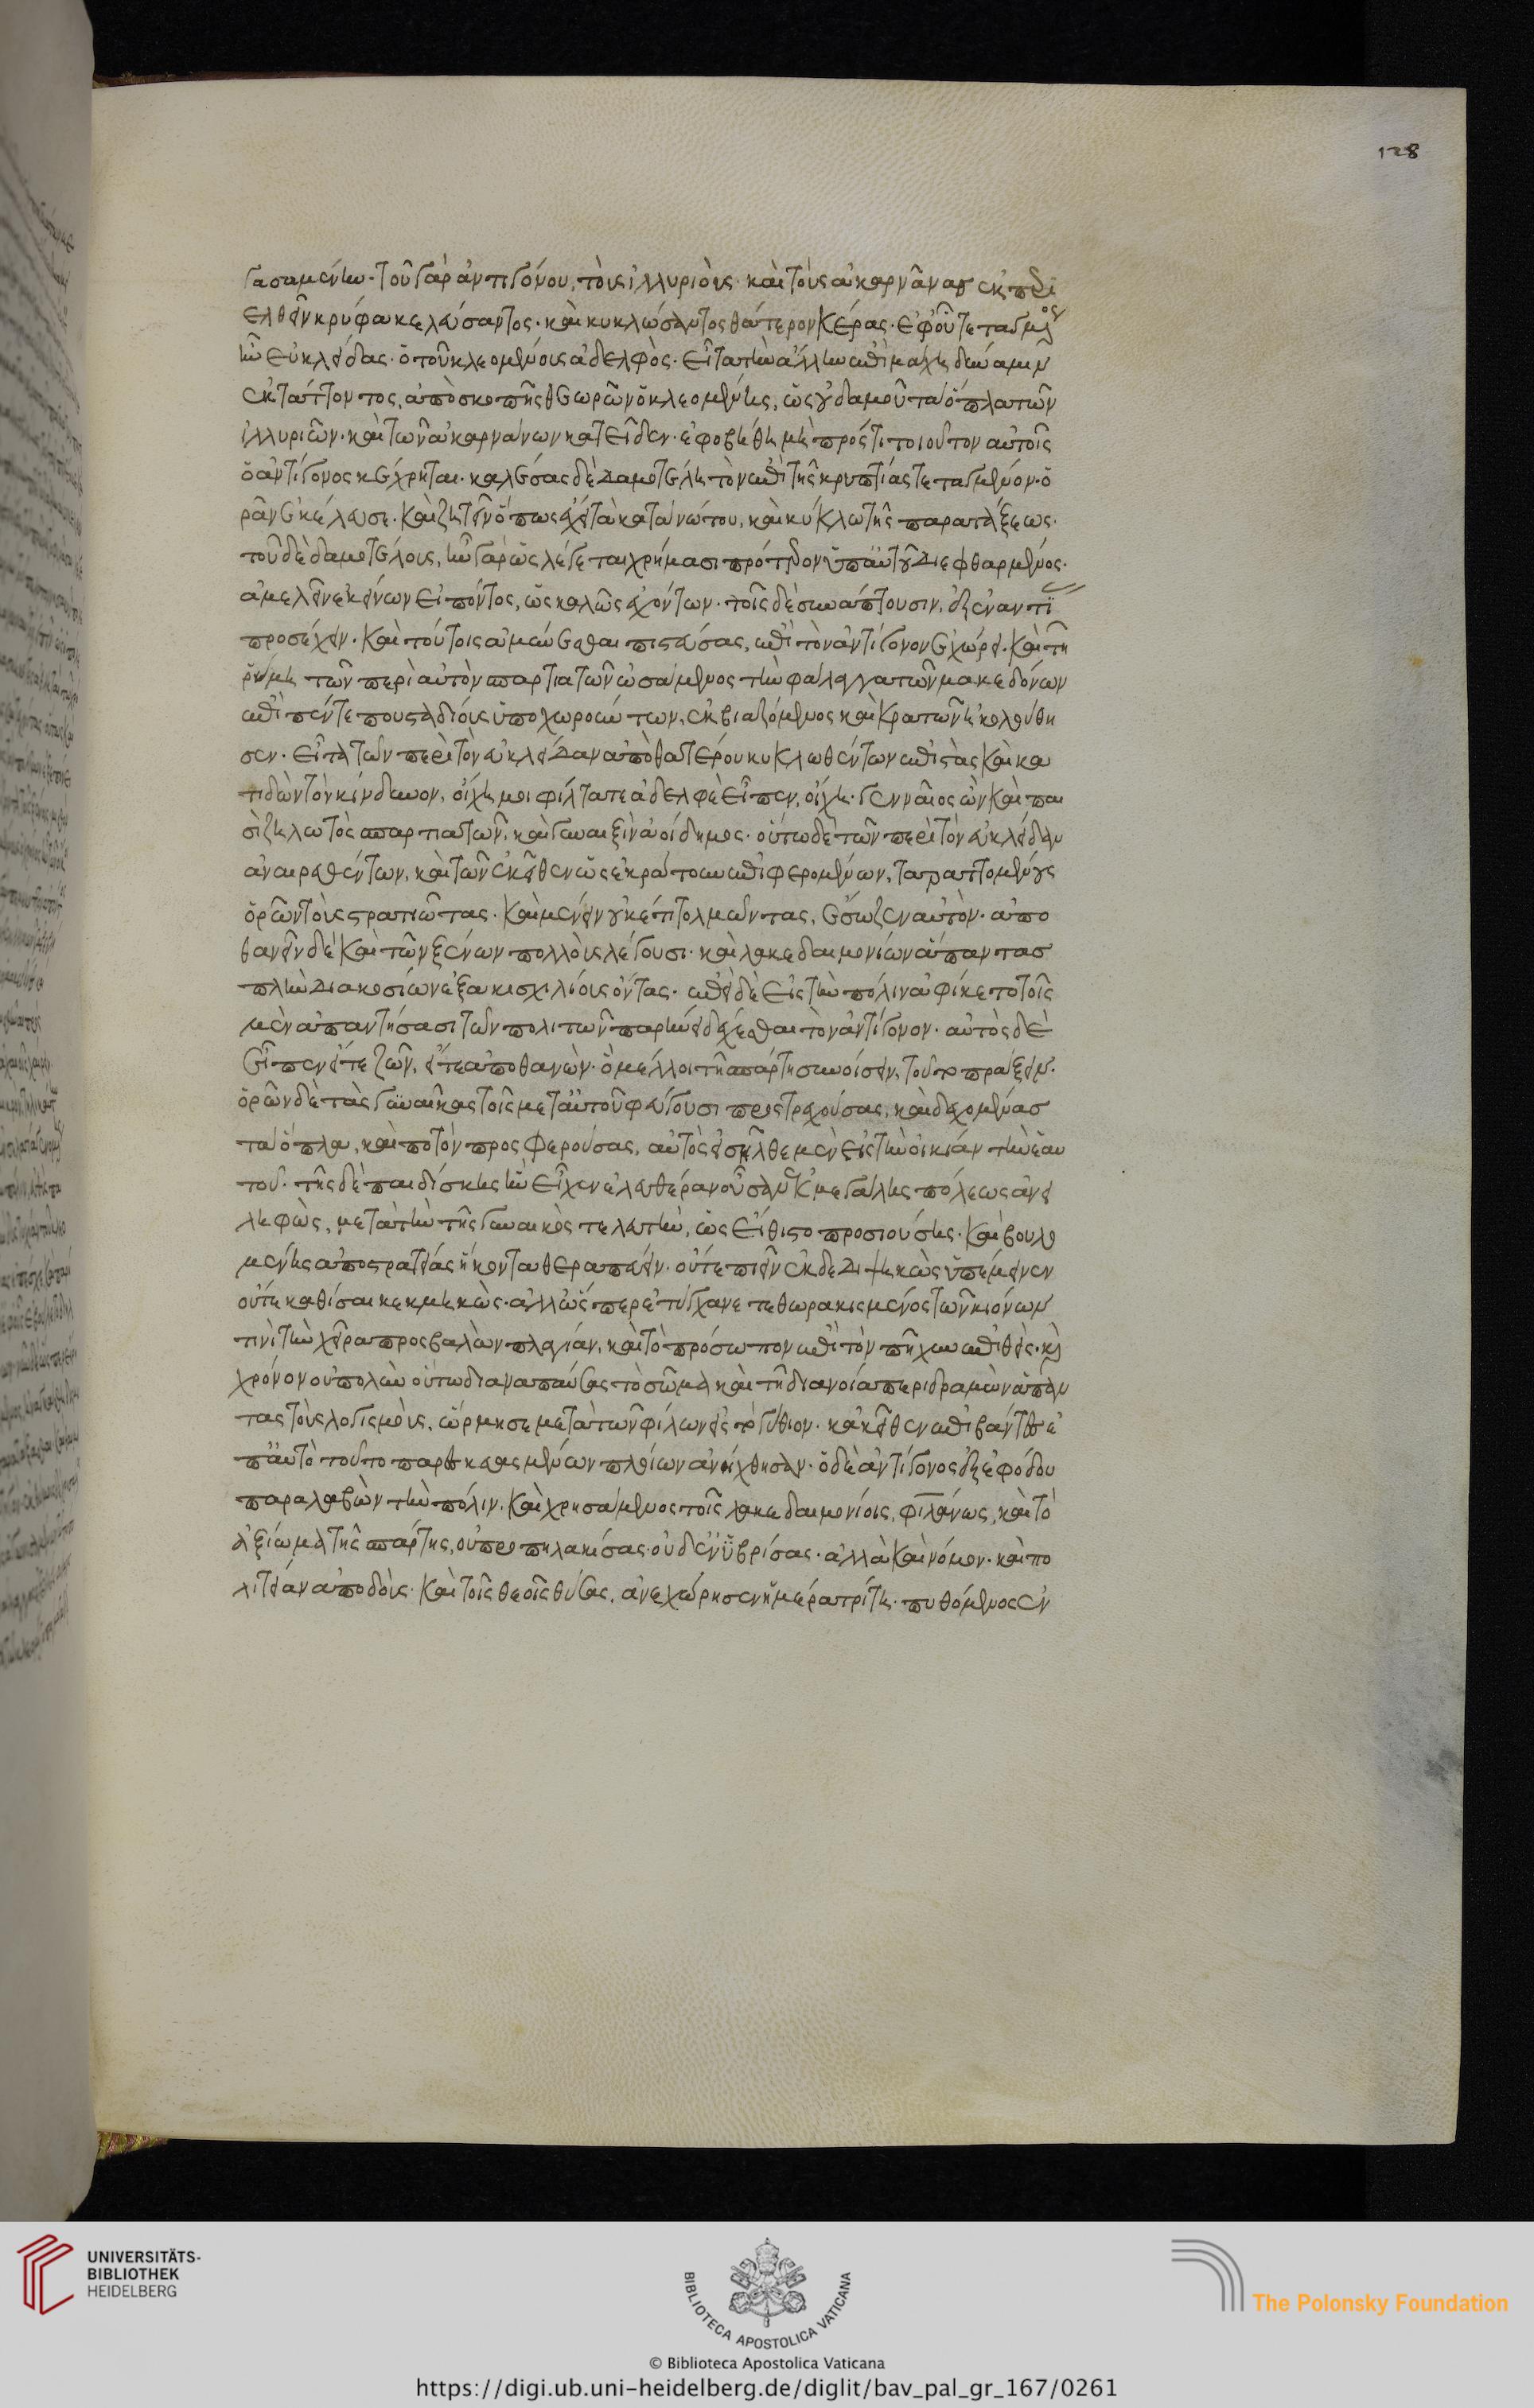 128
γασαμένω· τοῦ γὰρ ἀντιγόνου, τοὺς ἰλλυριοὺς· καὶ τοὺς ἀκαρνᾶνας ἐκπερι
ελθεῖν κρύφα κελεύσαντος· καὶ κυκλώσαντος θάτερον κέρας· ἐφ' οὗ τεταγμένος
ἦν εὐκλείδας· ὁ τοῦ κλεομένους ἀδελφὸς· εἶτα τὴν ἄλλην ἐπὶ μάχη δύναμιν
ἐκτάττοντος, ἀπὸ σκοπῆς θεωρῶν ὁ κλεομένης, ὡς οὐδαμοῦ τὰ ὅπλα τῶν
ἰλλυριῶν· καὶ τῶν ἀκαρνάνων κατεῖδεν· ἐφοβήθη μὴ πρός τι τοιοῦτον αὐτοῖς
ὁ ἀντίγονος κέχρηται· καλέσας δὲ δαμοτέλη τὸν ἐπὶ τῆς κρυπτίας τεταγμένον· ὁ
ρᾶν ἐκέλευσε· καὶ ζητεῖν ὅπως ἔχει τὰ κατὰ νώτου, καὶ κύκλω τῆς παρατάξεως·
τοῦ δὲ δαμοτέλους, ἦν γὰρ ὡς λέγεται χρήμασι πρότερον ὑπ' αὐτοῦ διεφθαρμένος·
ἀμελεῖν ἐκείνων εἰπόντος, ὡς καλῶς ἐχόντων· τοῖς δὲ συνάπτουσιν, ἐξ ἐναντί
προσέχειν· καὶ τούτοις ἀμύνεσθαι πιστεύσας, ἐπὶ τὸν ἀντίγονον ἐχώρει· καὶ τῆ
ρύμη τῶν περὶ αὐτὸν σπαρτιατῶν ὠσάμενος τὴν φάλαγγα τῶν μακεδόνων
ἐπὶ πέντε που σταδίους ὑποχωρούντων, ἐκβιαζόμενος καὶ κρατῶν ἠκολούθη
σεν· εἶτα τῶν περὶ τὸν εὐκλείδαν ἀπὸ θατέρου κυκλωθέντων ἐπιστὰς καὶ κα
τιδὼν τὸν κίνδυνον, οἴχη μοι φίλτατε ἀδελφὲ εἶπεν, οἴχη· γενναῖος ὢν καὶ παι
σὶ ζηλωτὸς σπαρτιατῶν, καὶ γυναιξὶν ἀοίδιμος· οὕτω δὲ τῶν περὶ τὸν εὐκλείδαν
ἀναιρεθέντων, καὶ τῶν ἐκεῖθεν ὡς ἐκράτουν ἐπιφερομένων, ταραττομένους
ὁρῶν τοὺς στρατιώτας· καὶ μένειν οὐκέτι τολμῶντας, ἔσωζεν αὐτὸν· ἀπο
θανεῖν δὲ καὶ τῶν ξένων πολλοὺς λέγουσι· καὶ λακεδαιμονίων ἅπαντας
πλὴν διακοσίων ἑξακισχιλίους ὄντας· ἐπεὶ δὲ εἰς τὴν πόλιν ἀφίκετο τοῖς
μὲν ἀπαντήσασι τῶν πολιτῶν παρήνει δέχεσθαι τὸν ἀντίγονον· αὐτὸς δὲ
εἶπεν εἴτε ζῶν, εἴτε ἀποθανὼν· ὃ μέλλοι τῆ σπάρτη συνοίσειν, τοῦτο πράξειν·
ὁρῶν δὲ τὰς γυναῖκας τοῖς μετ' αὐτοῦ φεύγουσι προστρεχούσας, καὶ δεχομένας
τὰ ὅπλα, καὶ ποτὸν προσφερούσας, αὐτὸς εἰσῆλθε μὲν εἰς τὴν οἰκίαν τὴν ἑαυ
τοῦ· τῆς δὲ παιδίσκης ἣν εἶχεν ἐλευθέραν οὖσαν ἐκ μεγάλης πόλεως ἀνει
ληφὼς, μετὰ τὴν τῆς γυναικὸς τελευτὴν, ὡς εἴθιστο προσιούσης· καὶ βουλο
μένης ἀπὸ στρατείας ἥκοντα θεραπεύειν· οὔτε πιεῖν ἐκδεδιψηκὼς ὑπέμεινεν
οὔτε καθίσαι κεκμηκὼς· ἀλλ' ὥσπερ ἐτύγχανε τεθωρακισμένος τῶν κιόνων
τινὶ τὴν χεῖρα προσβαλὼν πλαγίαν, καὶ τὸ πρόσωπον ἐπὶ τὸν πῆχυν ἐπιθεὶς· καὶ
χρόνον οὐ πολὺν οὕτω διαναπαύσας τὸ σῶμα καὶ τῆ διανοία περιδραμὼν ἅπαν
τας τοὺς λογισμοὺς, ὥρμησε μετὰ τῶν φίλων εἰς τὸ γύθιον· κἀκεῖθεν ἐπιβάντες ἐ
π' αὐτὸ τοῦτο παρεσκευασμένων πλοίων ἀνήχθησαν· ὁ δὲ ἀντίγονος ἐξ ἐφόδου
παραλαβὼν τὴν πόλιν· καὶ χρησάμενος τοῖς λακεδαιμονίοις, φιλανθρώπως, καὶ τὸ
ἀξίωμα τῆς σπάρτης, οὐ προπηλακίσας· οὐδ' ἐνυβρίσας· ἀλλὰ καὶ νόμον· καὶ πο
λιτείαν ἀποδοὺς· καὶ τοῖς θεοῖς θύσας, ἀνεχώρησεν ἡμέρα τρίτη· πυθόμενος ἐν
UNIVERSITÄTS-
BIBLIOTHEK
HEIDELBERG
BIBLIOTECA APOSTOLICA VATICANA
The Polonsky Foundation
© Biblioteca Apostolica Vaticana
https://digi.ub.uni-heidelberg.de/diglit/bav_pal_gr_167/0261